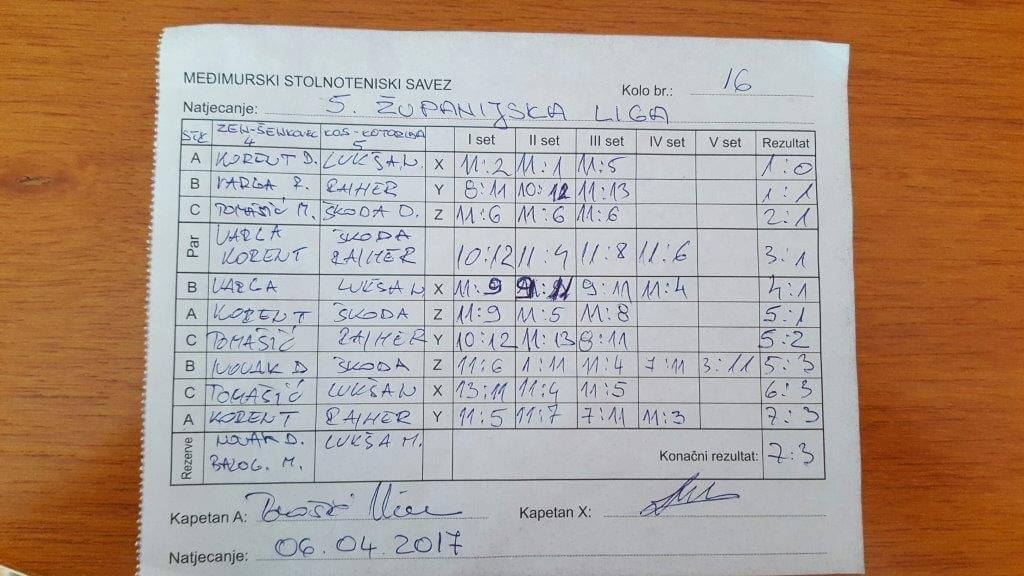 MEĐIMURSKI STOLNOTENISKI SAVEZ
Kolo br.: 16
Natjecanje: 5. ŽUPANIJSKA LIGA
I set II set III set IV set V set Rezultat
A KORENT D. LUKŠAN. X 11:2 11:1 11:5 1:0
B VARGA R. RAJHER Y 8:11 10:12 11:13 1:1
C TOMAŠIĆ M. ŠKODA D. Z 11:6 11:6 11:6 2:1
Par VARGA ŠKODA
KORENT RAJHER 10:12 11:4 11:8 11:6 3:1
B VARGA LUKŠAN X 11:9 9:11 11:4 4:1
A KORENT ŠKODA Z 11:9 11:5 11:8 5:1
C TOMAŠIĆ RAJHER Y 10:12 11:13 8:11 5:2
B NOVAK D ŠKODA Z 11:6 1:11 11:4 7:11 3:11 5:3
C TOMAŠIĆ LUKŠAN X 13:11 11:4 11:5 6:3
A KORENT RAJHER Y 11:5 11:7 7:11 11:3 7:3
Rezerve NOVAK D. LUKŠA M.
BALOG. M. Konačni rezultat: 7:3
Kapetan A: Kapetan X:
Natjecanje: 06.04.2017